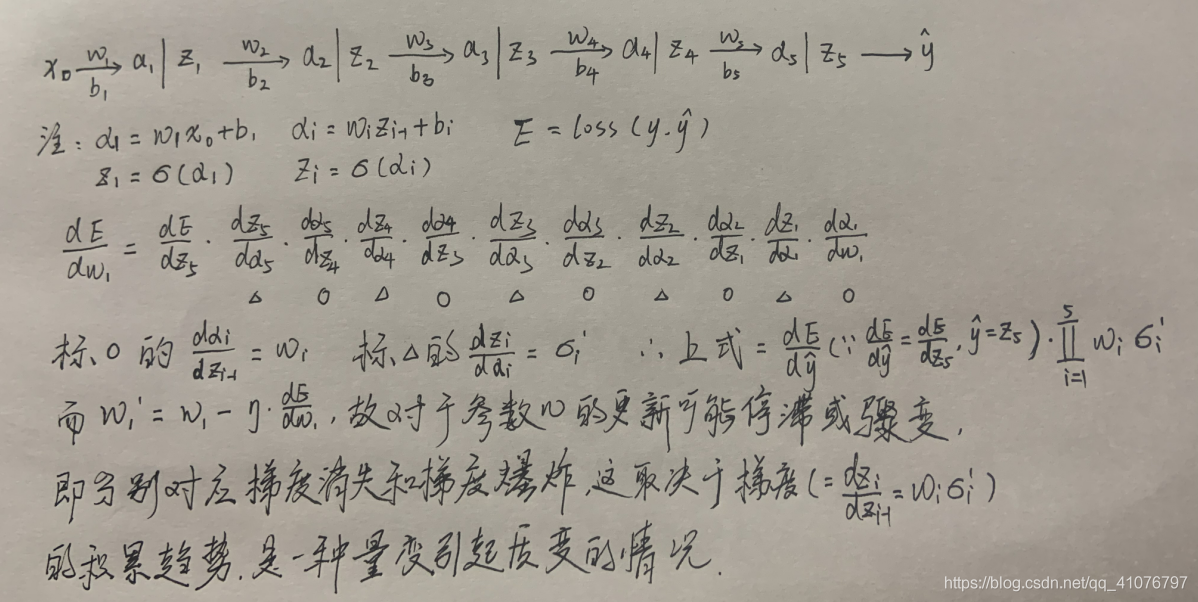 x₀ →(w₁ / b₁) α₁ | z₁ →(w₂ / b₂) α₂ | z₂ →(w₃ / b₃) α₃ | z₃ →(w₄ / b₄) α₄ | z₄ →(w₅ / b₅) α₅ | z₅ → ŷ
注: α₁ = w₁x₀+b₁ αᵢ = wᵢzᵢ₋₁+bᵢ E = loss(y.ŷ)
z₁ = σ(α₁) zᵢ = σ(αᵢ)
dE/dw₁ = dE/dz₅ · dz₅/dα₅ · dα₅/dz₄ · dz₄/dα₄ · dα₄/dz₃ · dz₃/dα₃ · dα₃/dz₂ · dz₂/dα₂ · dα₂/dz₁ · dz₁/dα₁ · dα₁/dw₁
△ ○ △ ○ △ ○ △ ○ △ ○
标○的 dαᵢ/dzᵢ₋₁ = wᵢ 标△的 dzᵢ/dαᵢ = σᵢ' ∴上式 = dE/dŷ (∵ dE/dŷ = dE/dz₅, ŷ=z₅) · ∏ᵢ₌₁⁵ wᵢ σᵢ'
而 w₁' = w₁ - η · dE/dw₁, 故对于参数w的更新可能停滞或骤变,
即分别对应梯度消失和梯度爆炸,这取决于梯度(= dzᵢ/dzᵢ₋₁ = wᵢσᵢ')
的积累趋势,是一种量变引起质变的情况.
https://blog.csdn.net/qq_41076797